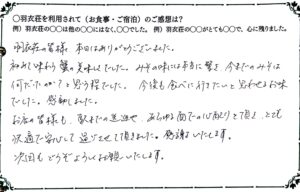 ○羽衣荘を利用されて（お食事・ご宿泊）のご感想は？
例）羽衣荘の○○は他の○○にはなく、○○でした。 例）羽衣荘の○○がとても○○で、心に残りました。
羽衣荘の皆様 本日はありがとうございました。
初めて味わう蟹の美味しさでした。みその味には本当に驚き、今までのみそは
何だったのか？と思う程でした。今後も食べに行きたいと思わせるお味
でした。感動しました。
お店の皆様も、駅までの送迎や、あらゆる面での心配りを頂き、とても
快適で安心して過ごさせて頂きました。感謝をいたします。
次回もどうぞよろしくお願いいたします。